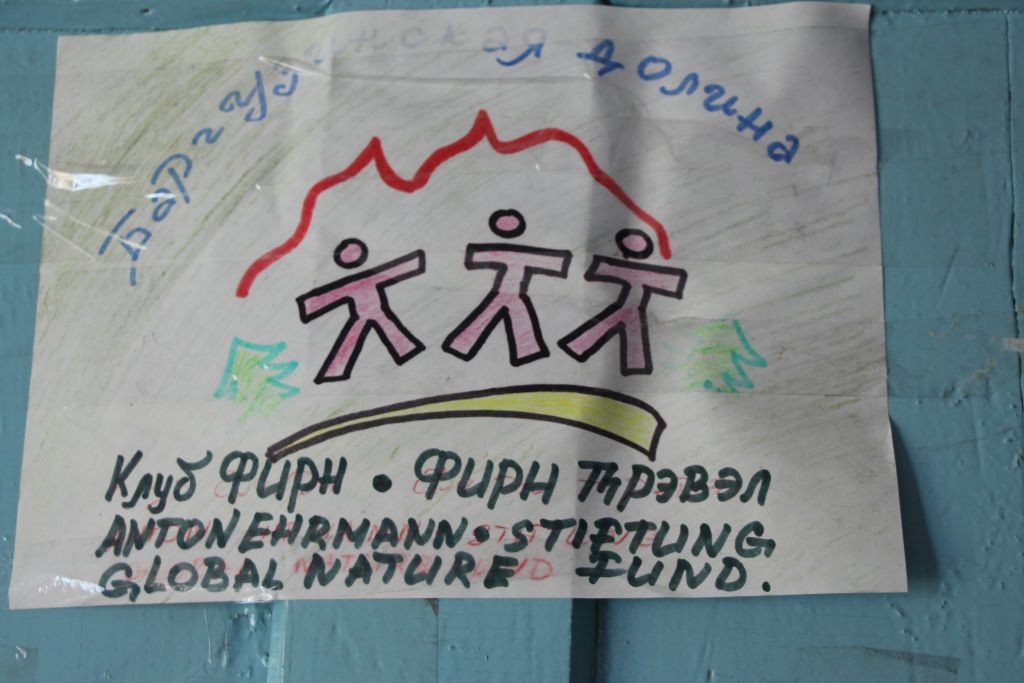 Баргузинская долина
Клуб ФИРН • ФИРН ТРЭВЭЛ
ANTON EHRMANN • STIFTUNG
GLOBAL NATURE FUND.